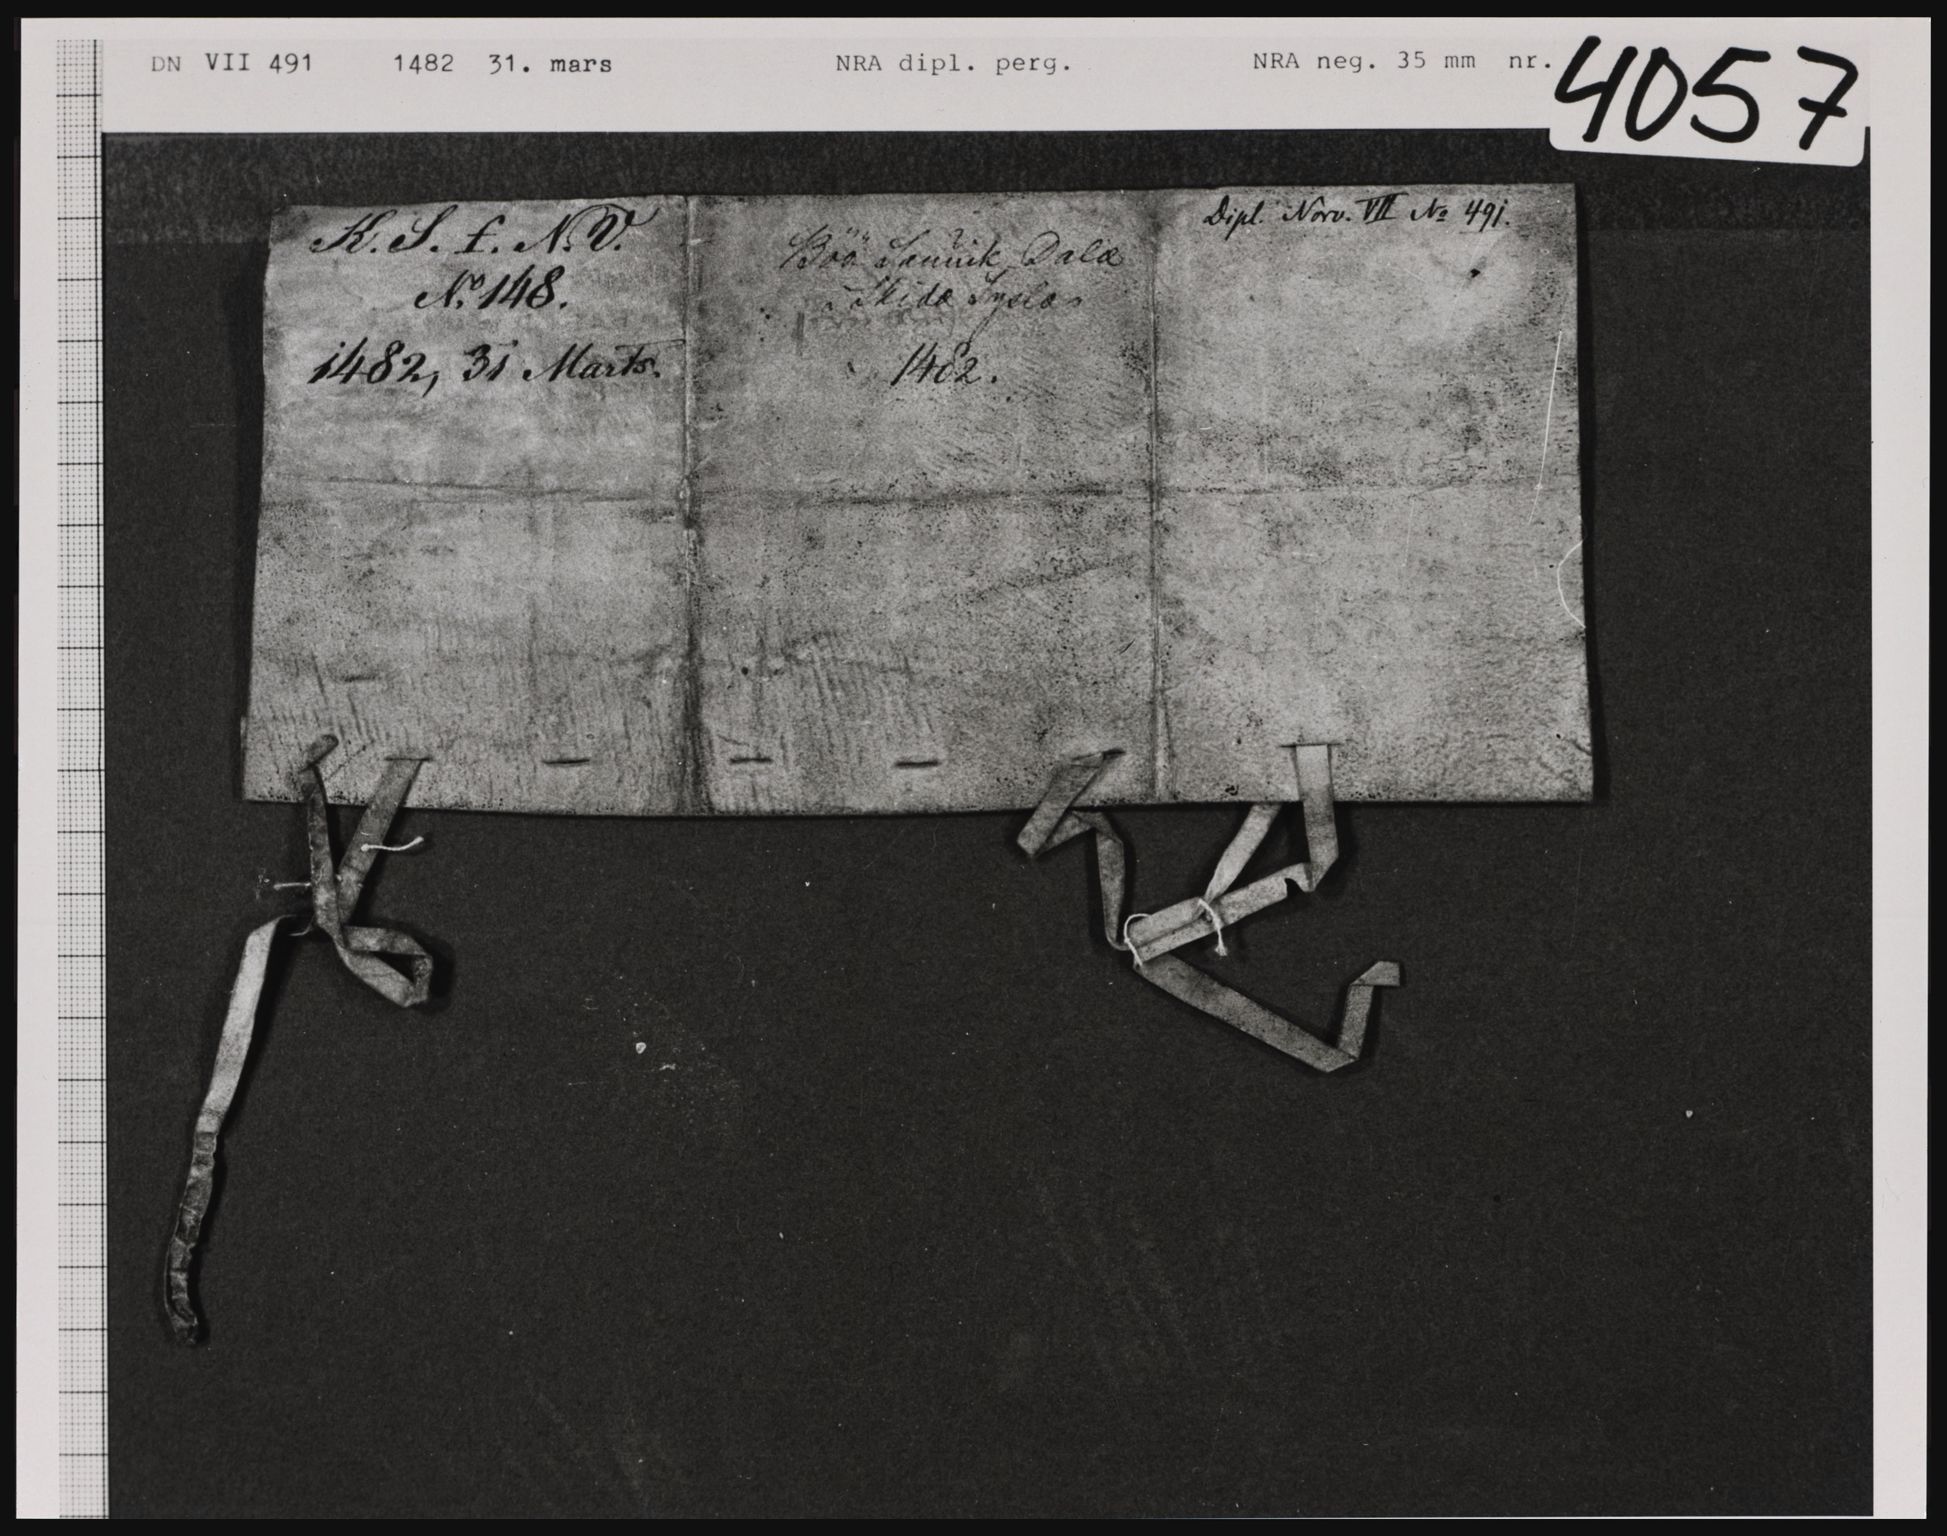 DN VII 491 1482 31. mars NRA dipl. perg. NRA neg. 35 mm nr. 4057
K. S. f. N. V.
No 148.
1482, 31 Marts.
Böö Dalæ
i Skidæ Syslæ
1482.
Dipl. Norv. VII No 491.